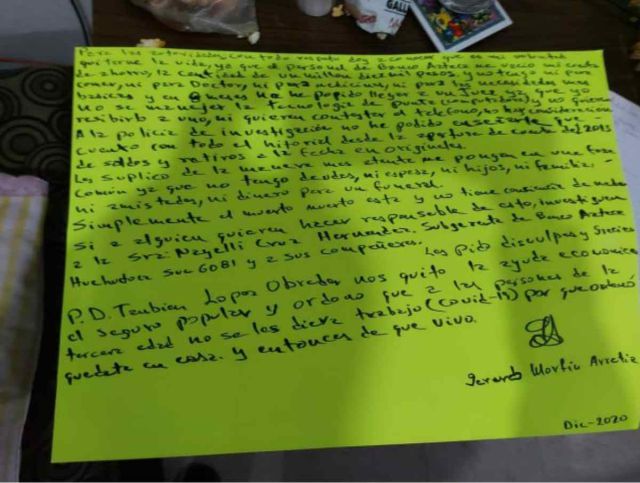 GALL
Para las autoridades con todo respeto doy a conocer que es mi voluntad
quitarme la vida, ya que el personal de Banco Azteca me vacio mi cuenta
de ahorro, la cantidad de un millon diez mil pesos y no tengo ni para
comer, ni para Doctor, ni para medicinas, ni para las necesidades mas
basicas y en ocasiones he pedido llegar a un ya que yo
no se manejar la tecnologia de punta (computadora) y no quieren
recibirlo a uno, ni quieren contestar el telefono, no hay consideracion
A la policia de investigación no he podido que
cuento con todo el historial desde la apertura de cuenta del 2015
de saldos y retiros a la fecha en originales.
Les suplico de la manera mas atenta me pongan en una fosa
común ya que no tengo deudos, ni esposa, ni hijos, ni familia,
ni amistades, ni dinero para un funeral.
Simplemente el muerto muerto esta y no tiene conciencia de nada
Si a alguien quieren hacer responsable de esto, investiguen
a la Srta. Nayelli Cruz Hernandez. Subgerente de Banco Azteca
Huehuetoca Suc 6081 y a sus compañeros.
Les Pido disculpas y Gracias
P.D. Tambien Lopez Obrador nos quito la ayuda economica
el seguro popular y ordeno que a las personas de la
tercera edad no se les diera trabajo (covid-19) por que ordeno
quedate en casa. y entonces de que vivo.
Gerardo
Dic-2020